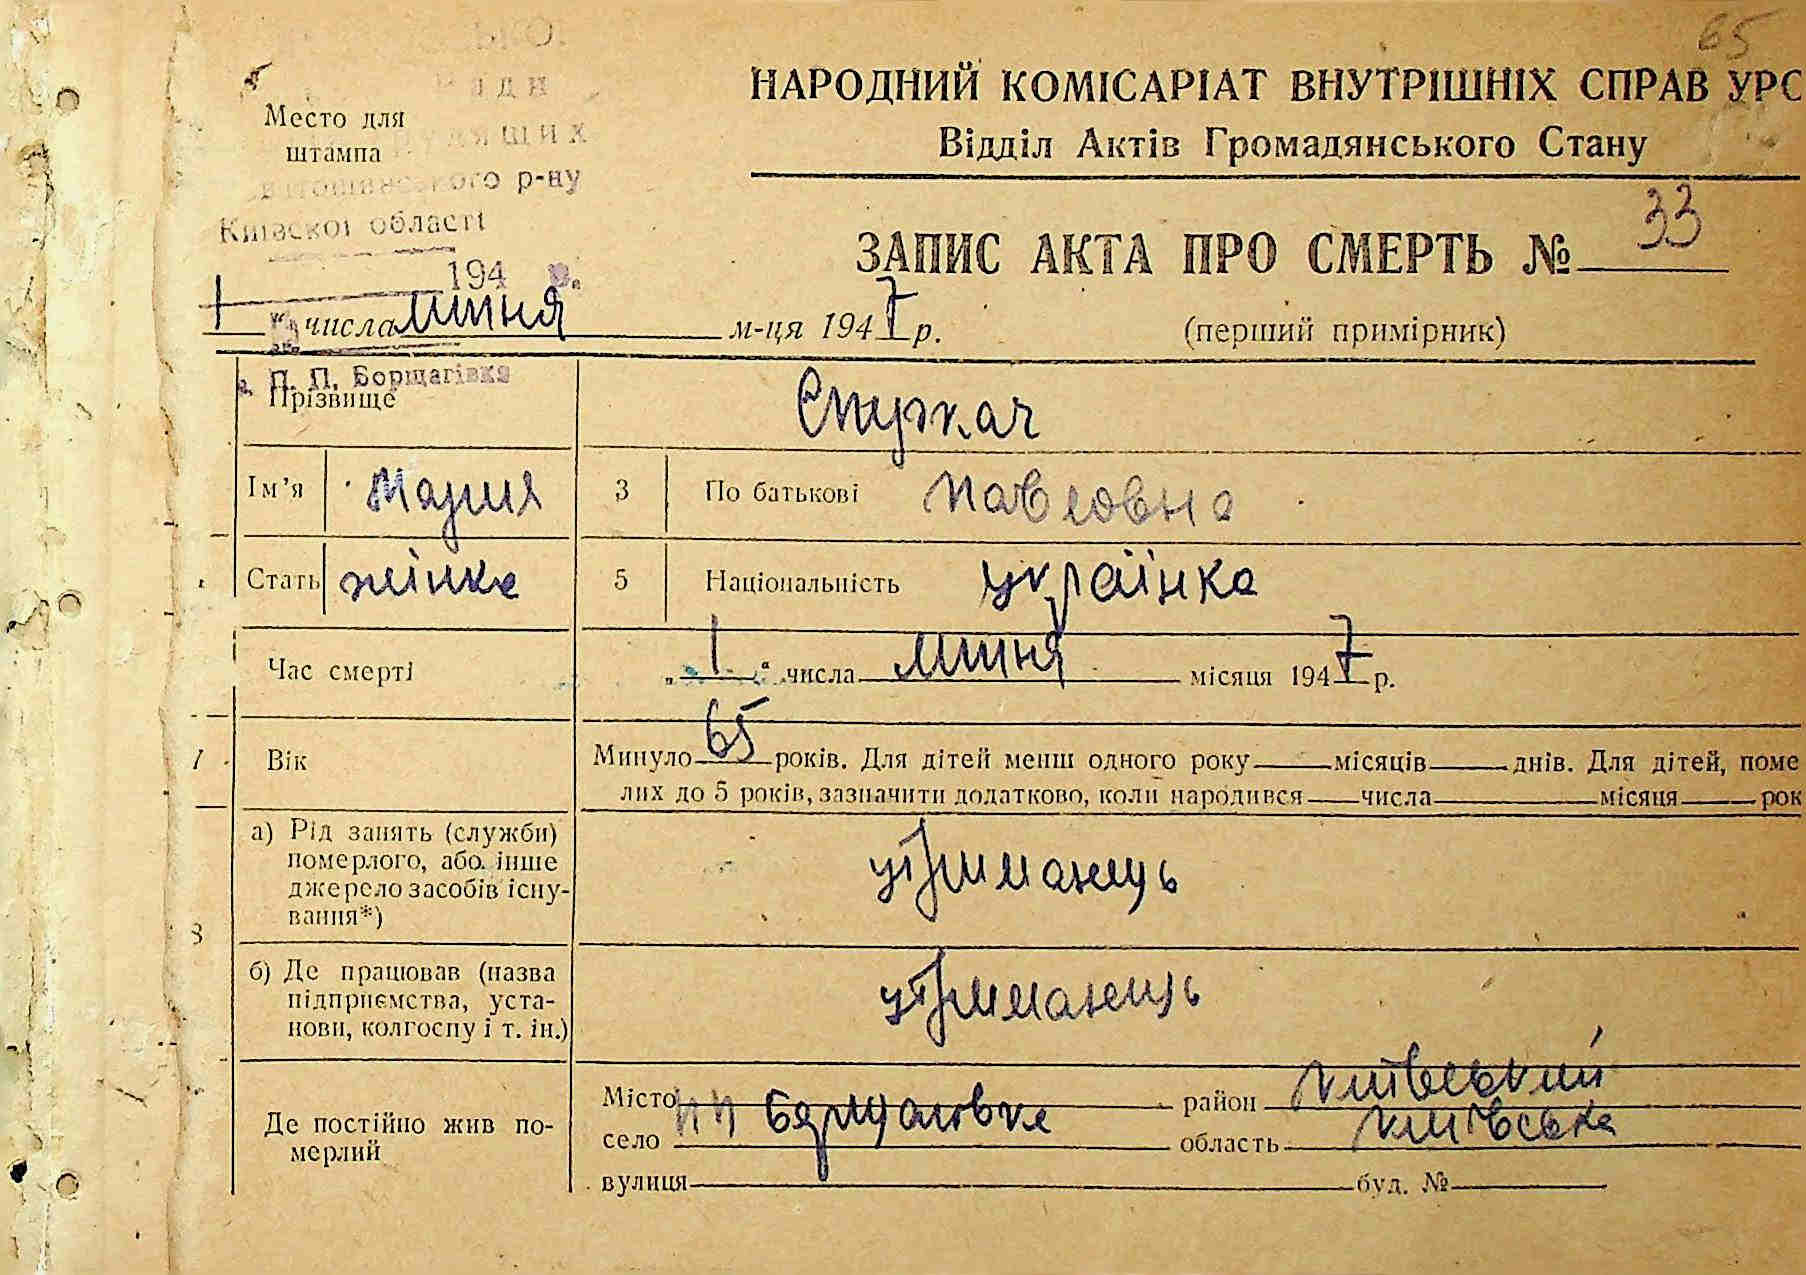 65
НАРОДНИЙ КОМІСАРІАТ ВНУТРІШНІХ СПРАВ УРС
Відділ Актів Громадянського Стану
Место для
штампа
р-ну
Київскої області
194 р.
ЗАПИС АКТА ПРО СМЕРТЬ № 33
1 числа липня м-ця 1947 р.
(перший примірник)
П. П. Борщагівка
Прізвище
Ім'я Мария 3 По батькові Павловна
Стать жінка 5 Національність українка
Час смерті „1“ числа липня місяця 1947 р.
7 Вік Минуло 65 років. Для дітей менш одного року місяців днів. Для дітей, поме
лих до 5 років, зазначити додатково, коли народився числа місяця рок
а) Рід занять (служби)
померлого, або інше
джерело засобів існу-
вання*)
утриманець
8
б) Де працював (назва
підприємства, уста-
нови, колгоспу і т. ін.)
утриманець
Де постійно жив по-
мерлий
Місто район Київський
село ПП Борщагівка область Київська
вулиця буд. №